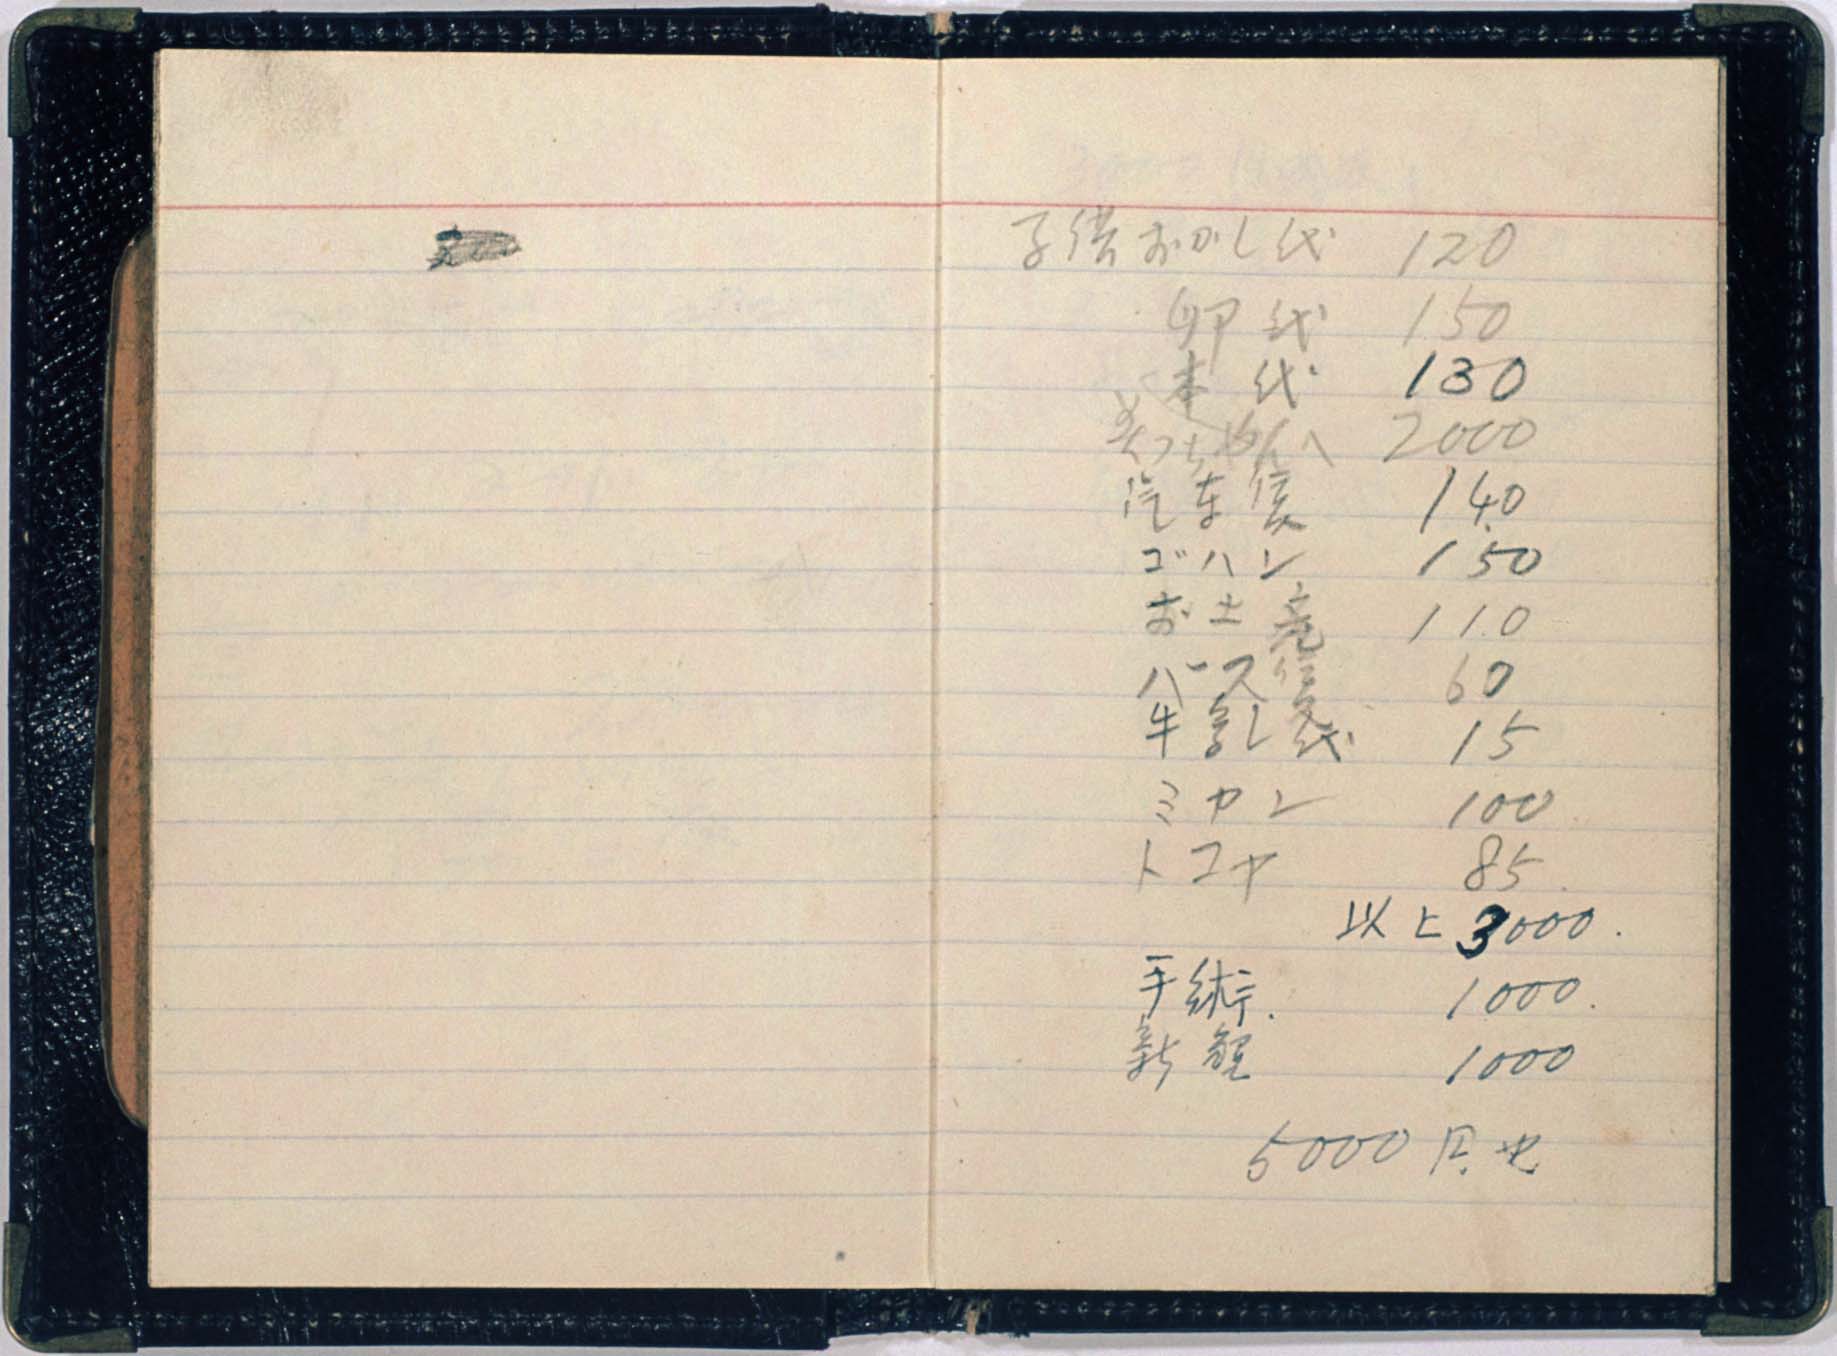 子供おかし代 120
卵代 150
本代 130
美つちやんへ 2000
汽車賃 140
ゴハン 150
お土産 110
バス賃 60
牛乳代 15
ミカン 100
トコヤ 85
以上 3000.
手術. 1000.
新館 1000
5000円也